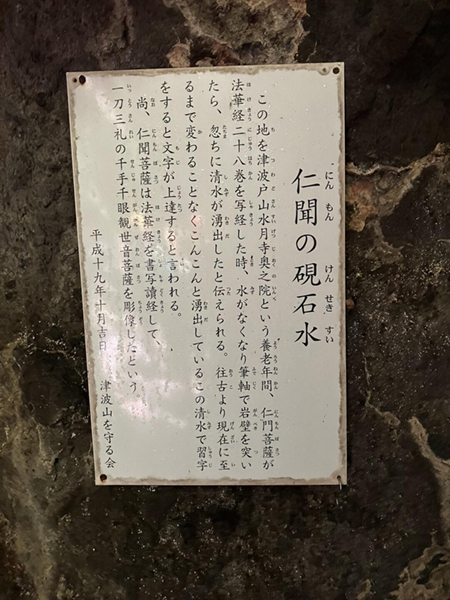 仁聞の硯石水
この地を津波戸山水月寺奥之院という養老年間、仁門菩薩が
法華経二十八巻を写経した時、水がなくなり筆軸で岩壁を突い
たら、忽ちに清水が湧出したと伝えられる。往古より現在に至
るまで変わることなくこんこんと湧出しているこの清水で習字
をすると文字が上達すると言われる。
尚、仁聞菩薩は法華経を書写讀経して、
一刀三礼の千手千眼観世音菩薩を彫像したという。
平成十九年十月吉日　津波山を守る会